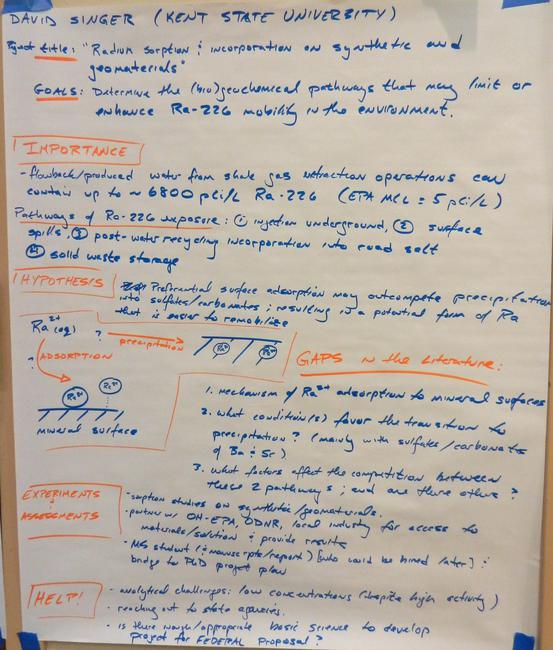 DAVID SINGER (KENT STATE UNIVERSITY)
Project title: "Radium sorption & incorporation on synthetic and
geomaterials"
GOALS: Determine the (bio)geochemical pathways that may limit or
enhance Ra-226 mobility in the environment.
IMPORTANCE
- flowback/produced water from shale gas extraction operations can
contain up to ~6800 pCi/L Ra-226 (EPA MCL = 5 pCi/L)
Pathways of Ra-226 exposure: ① injection underground, ② surface
spills, ③ post-water recycling incorporation into road salt
④ solid waste storage
HYPOTHESIS
Preferential surface adsorption may outcompete precipitation
into sulfates/carbonates; resulting in a potential form of Ra
that is easier to remobilize
Ra²⁺(aq)
?
precipitation
Ra²⁺
Ra²⁺
?
ADSORPTION
Ra²⁺
Ra²⁺
mineral surface
GAPS in the Literature:
1. mechanism of Ra²⁺ adsorption to mineral surfaces
2. what condition(s) favor the transition to
precipitation? (mainly with sulfates/carbonates
of Ba & Sr)
3. what factors affect the competition between
these 2 pathways; and are there others?
EXPERIMENTS
&
ASSESSMENTS
- sorption studies on synthetic/geomaterials.
- partner w/ OH-EPA, ODNR, local industry for access to
materials/solution & provide results
- MS student (& manuscripts/report) [who could be hired later] &
bridge to PhD project plan
HELP!
- analytical challenges: low concentrations (despite high activity)
- reaching out to state agencies.
- is there enough/appropriate basic science to develop
project for FEDERAL Proposal?